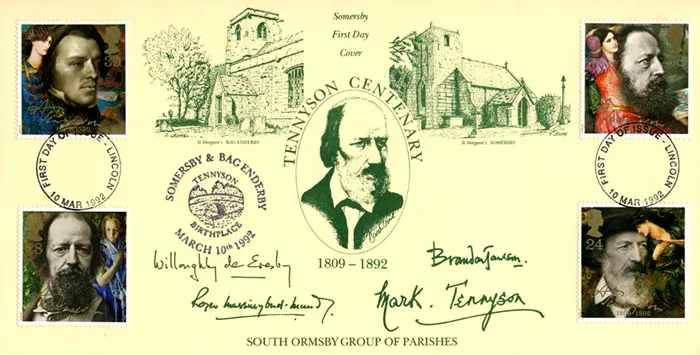 Somersby
First Day
Cover
39
St Margaret's BAG ENDERBY
St Margaret's SOMERSBY
TENNYSON CENTENARY
FIRST DAY OF ISSUE - LINCOLN
10 MAR 1992
FIRST DAY OF ISSUE - LINCOLN
10 MAR 1992
SOMERSBY & BAG ENDERBY
TENNYSON
BIRTHPLACE
MARCH 10th 1992
24
1809-1892
Willoughby de Eresby
1809 – 1892
Mark. Tennyson
SOUTH ORMSBY GROUP OF PARISHES